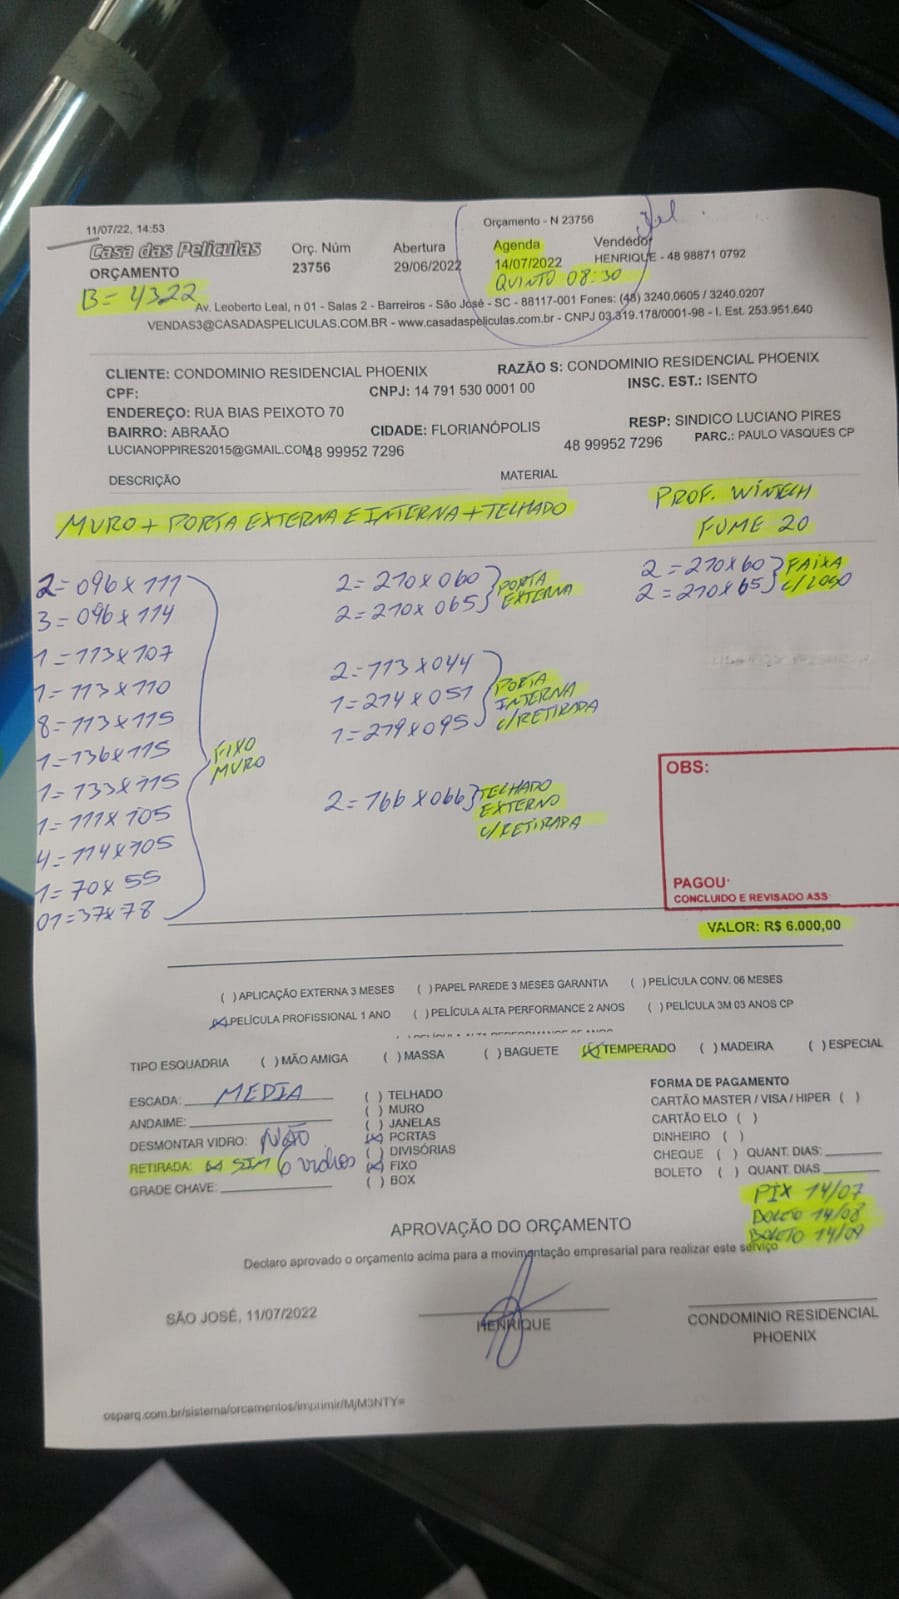 11/07/22, 14:53
Orçamento - N 23756
Casa das Peliculas
ORÇAMENTO
B= 4322
Orç. Núm
23756
Abertura
29/06/2022
Agenda
14/07/2022
QUINTO 08:30
Vendedor
HENRIQUE - 48 98871 0792
Av. Leoberto Leal, n 01 - Salas 2 - Barreiros - São José - SC - 88117-001 Fones: (48) 3240.0605 / 3240.0207
VENDAS3@CASADASPELICULAS.COM.BR - www.casadaspeliculas.com.br - CNPJ 03.319.178/0001-98 - I. Est. 253.951.640
CLIENTE: CONDOMINIO RESIDENCIAL PHOENIX
RAZÃO S: CONDOMINIO RESIDENCIAL PHOENIX
CPF:
CNPJ: 14 791 530 0001 00
INSC. EST.: ISENTO
ENDEREÇO: RUA BIAS PEIXOTO 70
BAIRRO: ABRAÃO
CIDADE: FLORIANÓPOLIS
RESP: SINDICO LUCIANO PIRES
LUCIANOPPIRES2015@GMAIL.COM
48 99952 7296
48 99952 7296
PARC.: PAULO VASQUES CP
DESCRIÇÃO
MATERIAL
MURO + PORTA EXTERNA E INTERNA + TELHADO
PROF. WINTECH
FUME 20
2= 096 x 111
3= 096 x 114
1= 113 x 107
1= 113 x 110
8= 113 x 115
1= 136 x 115
1= 133 x 115
1= 111 x 105
4= 114 x 105
1= 70 x 55
01= 37 x 78
FIXO
MURO
2= 210 x 060
2= 210 x 065
PORTA
EXTERNA
2= 113 x 044
1= 214 x 051
1= 219 x 095
PORTA
INTERNA
C/RETIRADA
2= 166 x 066
TELHADO
EXTERNO
C/RETIRADA
2= 210 x 60
2= 210 x 65
FAIXA
C/LOGO
OBS:
PAGOU:
CONCLUIDO E REVISADO ASS:
VALOR: R$ 6.000,00
( ) APLICAÇÃO EXTERNA 3 MESES ( ) PAPEL PAREDE 3 MESES GARANTIA ( ) PELÍCULA CONV. 06 MESES
(x) PELÍCULA PROFISSIONAL 1 ANO ( ) PELÍCULA ALTA PERFORMANCE 2 ANOS ( ) PELÍCULA 3M 03 ANOS CP
TIPO ESQUADRIA ( ) MÃO AMIGA ( ) MASSA ( ) BAGUETE (x) TEMPERADO ( ) MADEIRA ( ) ESPECIAL
ESCADA: MEDIA
ANDAIME:
DESMONTAR VIDRO: NÃO
RETIRADA: (x) SIM 6 vidros
GRADE CHAVE:
( ) TELHADO
( ) MURO
( ) JANELAS
(x) PORTAS
( ) DIVISÓRIAS
(x) FIXO
( ) BOX
FORMA DE PAGAMENTO
CARTÃO MASTER / VISA / HIPER ( )
CARTÃO ELO ( )
DINHEIRO ( )
CHEQUE ( ) QUANT. DIAS:
BOLETO ( ) QUANT. DIAS
PIX 14/07
BOLETO 14/08
BOLETO 14/09
APROVAÇÃO DO ORÇAMENTO
Declaro aprovado o orçamento acima para a movimentação empresarial para realizar este serviço
SÃO JOSÉ, 11/07/2022
HENRIQUE
CONDOMINIO RESIDENCIAL
PHOENIX
osparq.com.br/sistema/orcamentos/imprimir/MjM3NTY=